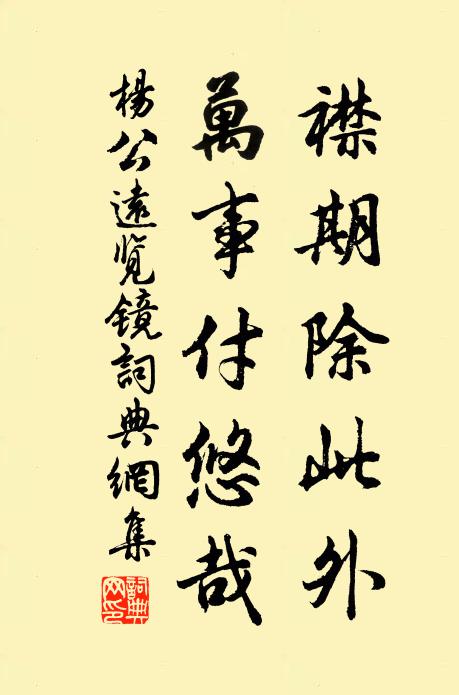 襟期除此外
萬事付悠哉
楊公遠览鏡詞典網集
詞典网印